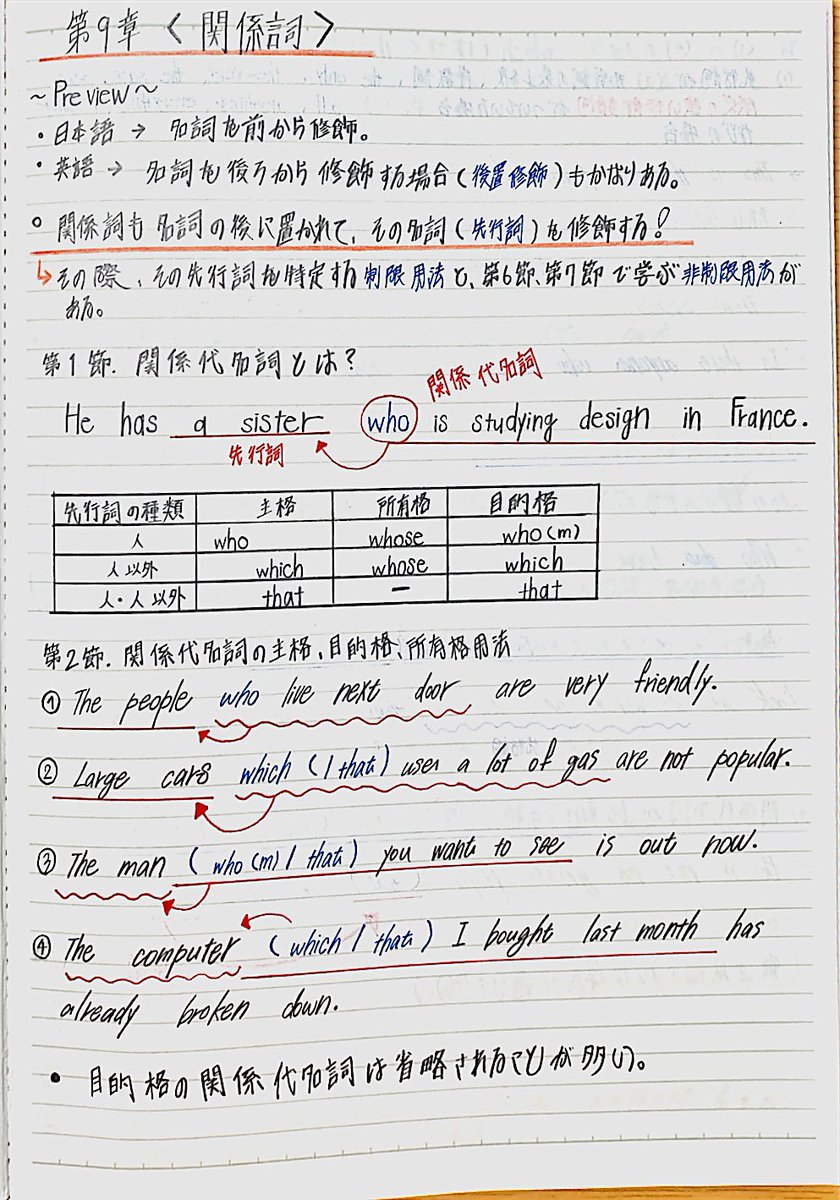 第9章〈関係詞〉
~Preview~
・日本語 → 名詞を前から修飾。
・英語 → 名詞を後ろから修飾する場合(後置修飾)もかなりある。
○ 関係詞も名詞の後に置かれて、その名詞(先行詞)を修飾する!
↳その際、その先行詞を特定する制限用法と、第6節、第7節で学ぶ非制限用法が
ある。
第1節. 関係代名詞とは?
関係代名詞
He has a sister who is studying design in France.
先行詞
先行詞の種類 主格 所有格 目的格
人 who whose who(m)
人以外 which whose which
人・人以外 that ー that
第2節. 関係代名詞の主格、目的格、所有格用法
① The people who live next door are very friendly.
② Large cars which (/that) uses a lot of gas are not popular.
③ The man (who(m)/that) you want to see is out now.
④ The computer (which/that) I bought last month has
already broken down.
• 目的格の関係代名詞は省略されることが多い。